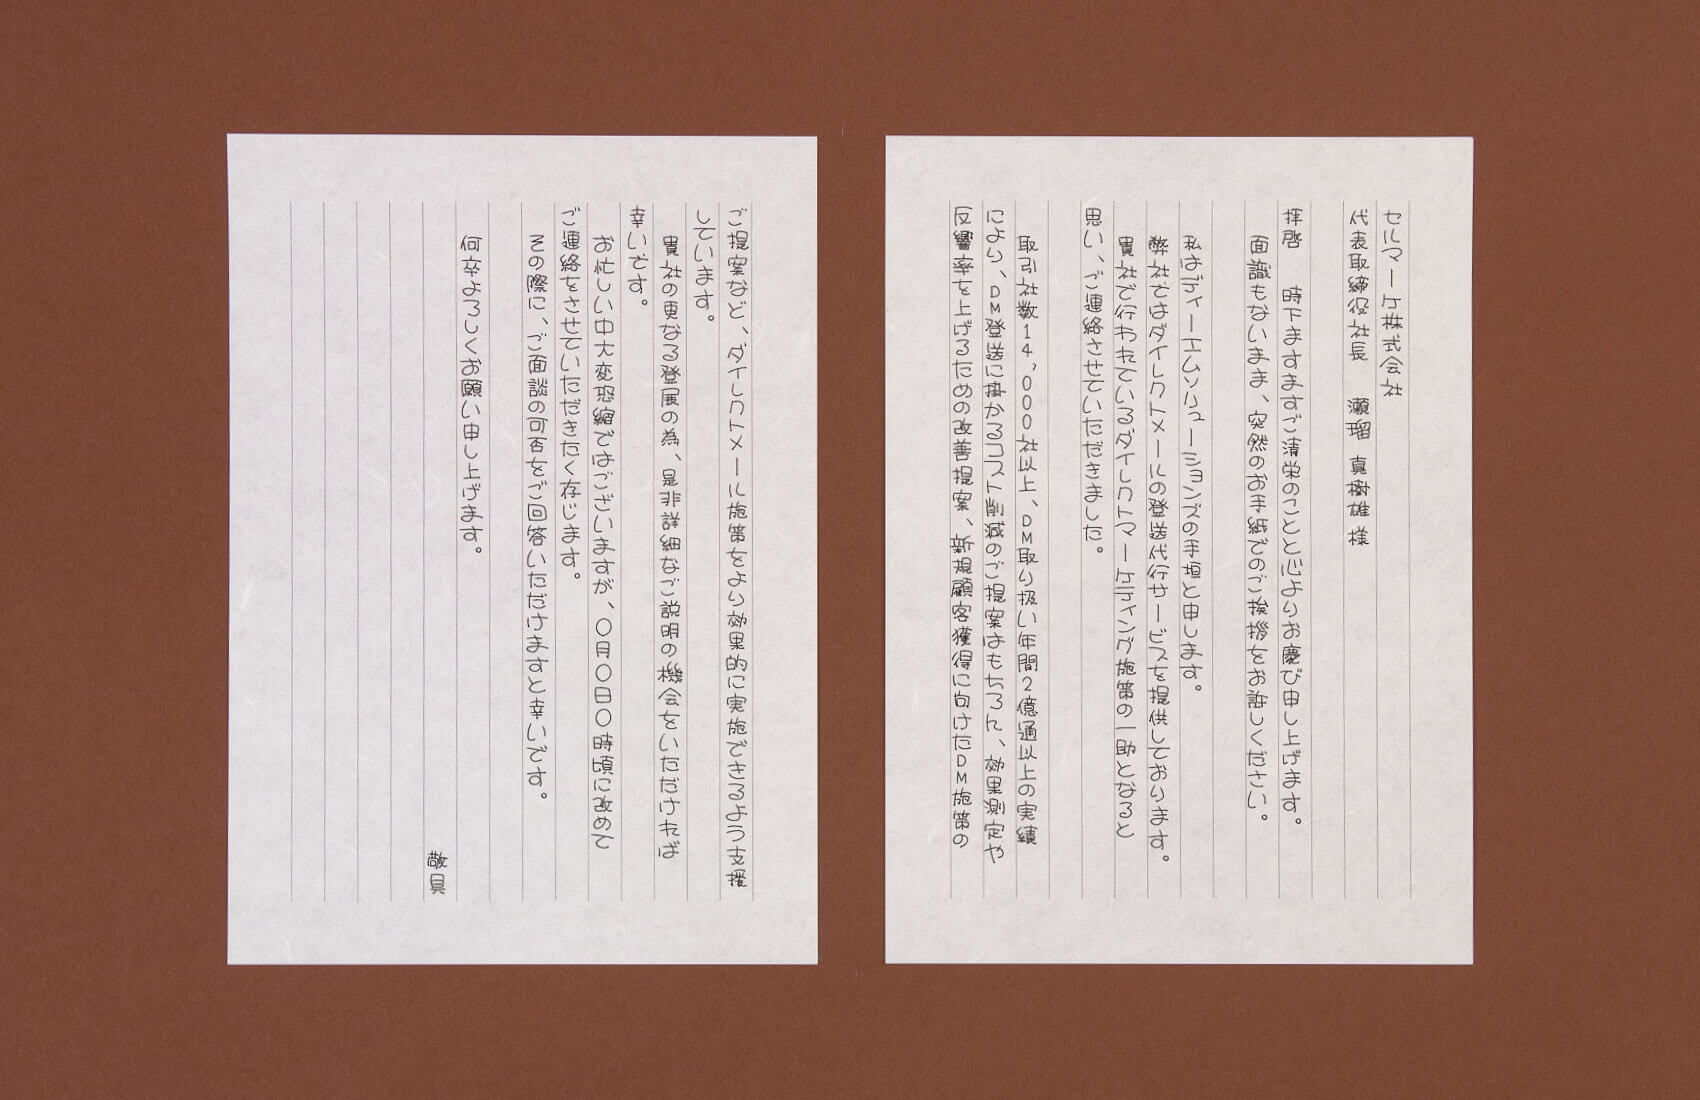 セルマーケ株式会社
代表取締役社長　瀬瑠 真樹雄 様
拝啓　時下ますますご清栄のことと心よりお慶び申し上げます。
面識もないまま、突然のお手紙でのご挨拶をお許しください。
私はディーエムソリューションズの手垣と申します。
弊社ではダイレクトメールの登送代行サービスを提供しております。
貴社で行われているダイレクトマーケティング施策の一助となると
思い、ご連絡させていただきました。
取引社数14,000社以上、DM取り扱い年間2億通以上の実績
により、DM登送に掛かるコスト削減のご提案はもちろん、効果測定や
反響率を上げるための改善提案、新規顧客獲得に向けたDM施策の
ご提案など、ダイレクトメール施策をより効果的に実施できるよう支援
しています。
貴社の更なる登展の為、是非詳細なご説明の機会をいただければ
幸いです。
お忙しい中大変恐縮ではございますが、〇月〇日〇時頃に改めて
ご連絡をさせていただきたく存じます。
その際に、ご面談の可否をご回答いただけますと幸いです。
何卒よろしくお願い申し上げます。
敬具